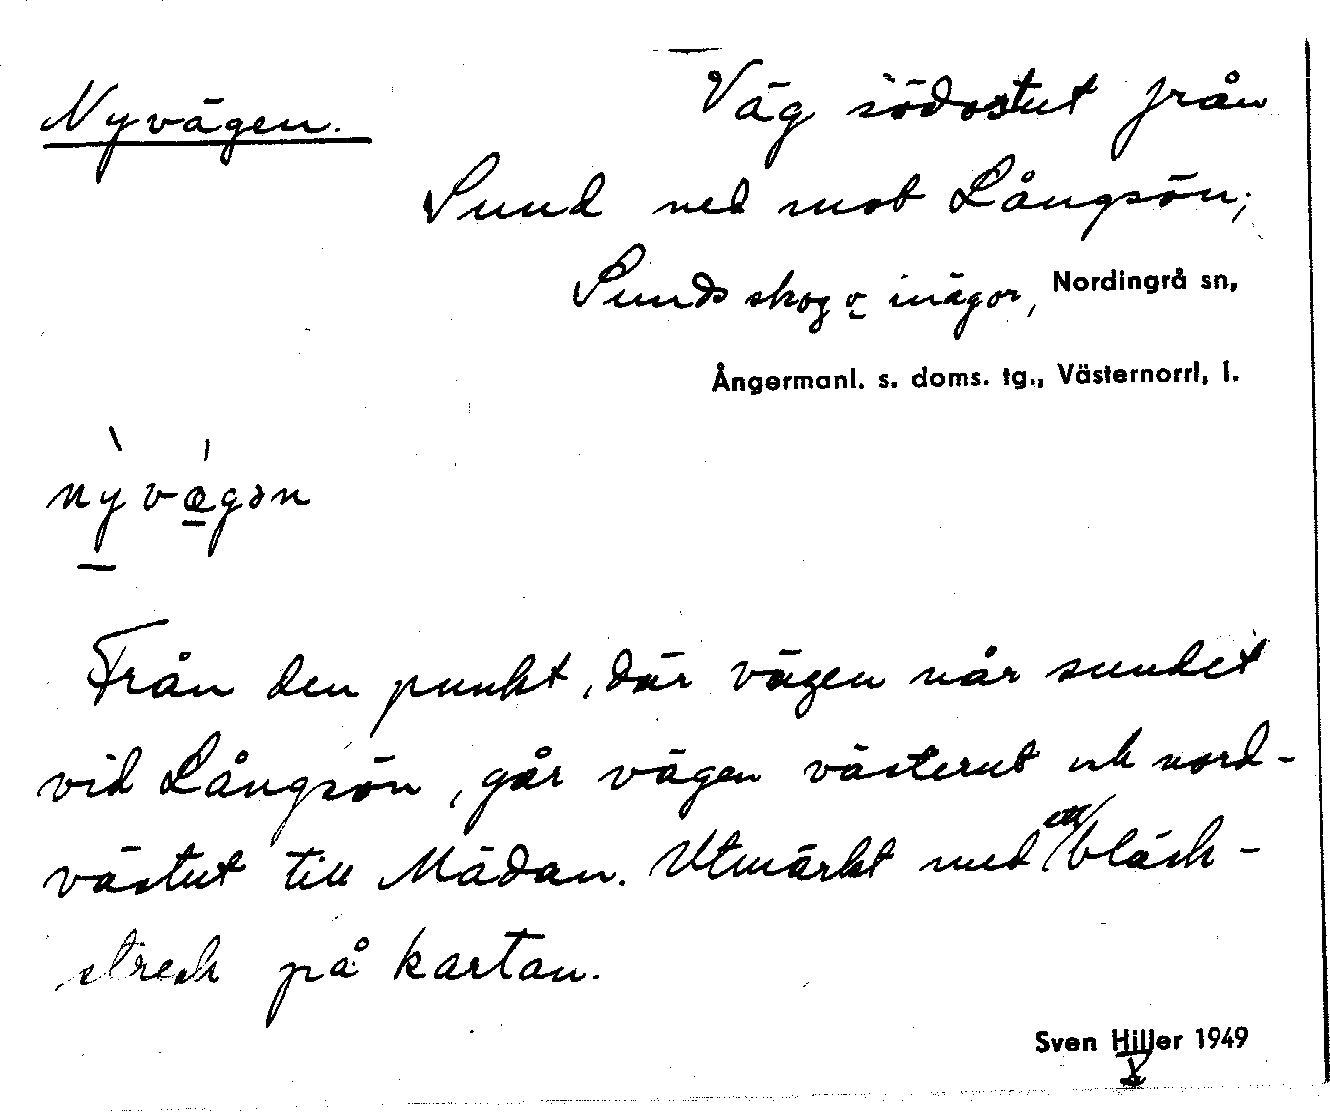 Nyvägen. Väg södostut från
Sund ned mot Långsön;
Sunds skog o inägor, Nordingrå sn,
Ångermanl. s. doms. tg., Västernorrl, l.
nỳ̠vǽ̠gən
Från den punkt, där vägen når sundet
vid Långsön, går vägen västerut och nord-
västut till Mädan. Utmärkt med ett bläck-
streck på kartan.
Sven Hiller 1949